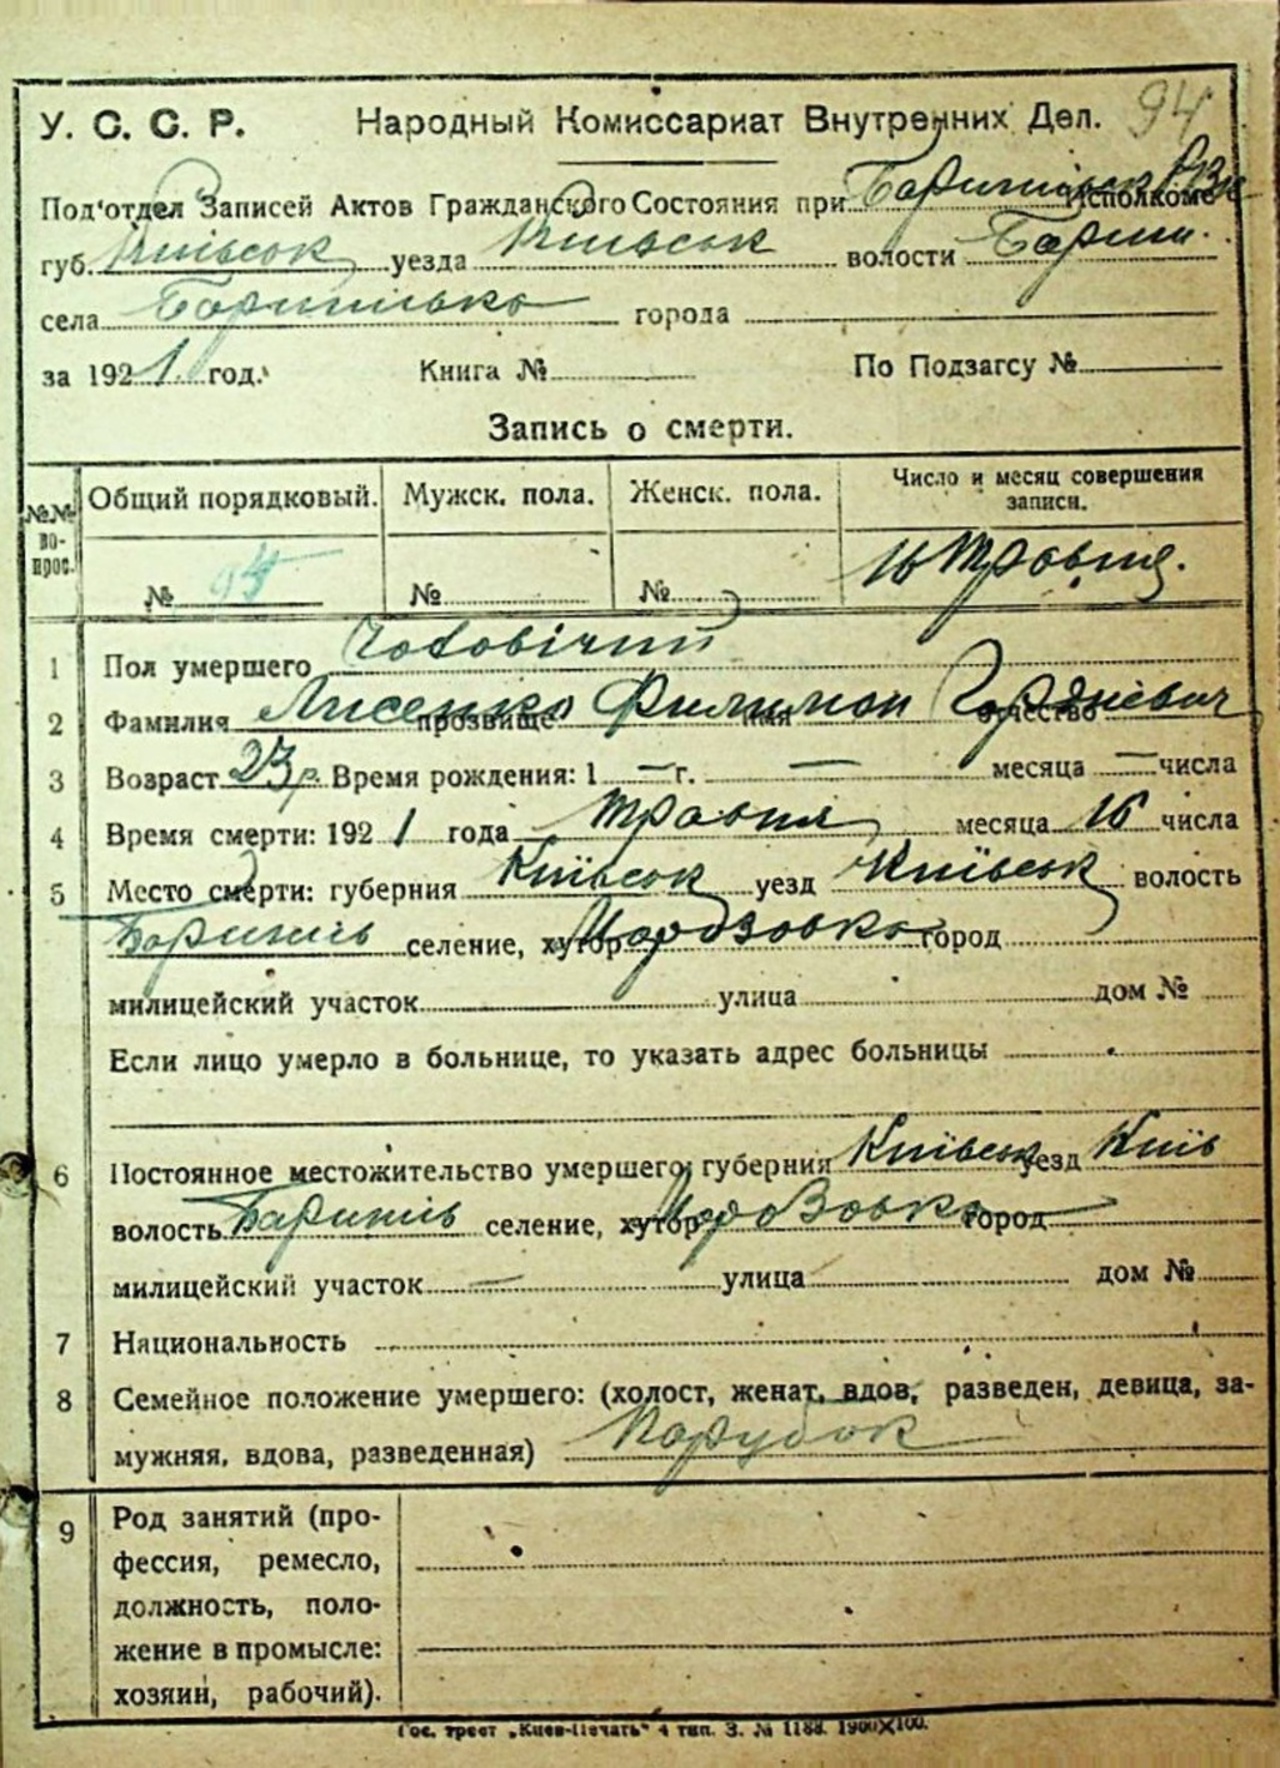 94
У. С. С. Р. Народный Комиссариат Внутренних Дел.
Под'отдел Записей Актов Гражданского Состояния при Исполкоме
губ. Київськ уезда Київськ волости Бориш.
села города
за 1921 год. Книга № По Подзагсу №
Запись о смерти.
№№ вопрос. Общий порядковый. Мужск. пола. Женск. пола. Число и месяц совершения записи.
№ № № 16 Травня.
1 Пол умершего Чоловічий
2 Фамилия Лисенко прозвище Филимон имя Гордиевич отчество
3 Возраст 23 р. Время рождения: 1 — г. — месяца — числа
4 Время смерти: 1921 года травня месяца 16 числа
5 Место смерти: губерния Київськ уезд Київськ волость
селение, хутор город
милицейский участок улица дом №
Если лицо умерло в больнице, то указать адрес больницы
6 Постоянное местожительство умершего: губерния Київськ уезд Київ
волость селение, хутор город
милицейский участок — улица дом №
7 Национальность
8 Семейное положение умершего: (холост, женат, вдов, разведен, девица, за-
мужняя, вдова, разведенная) Парубок
9 Род занятий (про-
фессия, ремесло,
должность, поло-
жение в промысле:
хозяин, рабочий).
Гос. трест „Киев-Печать" 4 тип. З. № 1188. 1900×100.